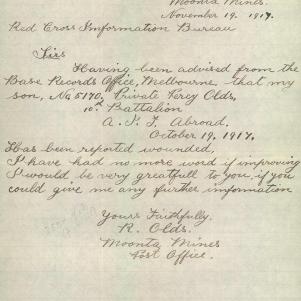 Moonta Mines.
November 19. 1917.
Red Cross Imformation Bureau
Sirs
Having been advised from the
Base Records Office, Melbourne, that my
son, No 5170, Private Percy Olds,
10th Battalion
A. I. F. Abroad.
October 19, 1917.
Has been reported wounded,
I have had no more word if improving
I would be very greatfull to you if you
could give me any further information
Yours Faithfully.
R. Olds.
Moonta Mines
Post Office.